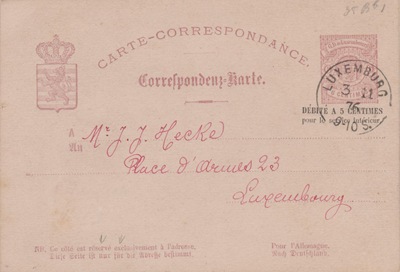 25 B 61
CARTE-CORRESPONDANCE.
Correspondenz-Karte.
LUXEMBURG
3 11
76
9-10 S.
DÉBITÉ A 5 CENTIMES
pour le service intérieur.
A
An
Mr J. J. Hecke
Place d'Armes 23
Luxembourg.
NB. Ce côté est réservé exclusivement à l'adresse.
Diese Seite ist nur für die Adresse bestimmt.
Pour l'Allemagne.
Nach Deutschland.